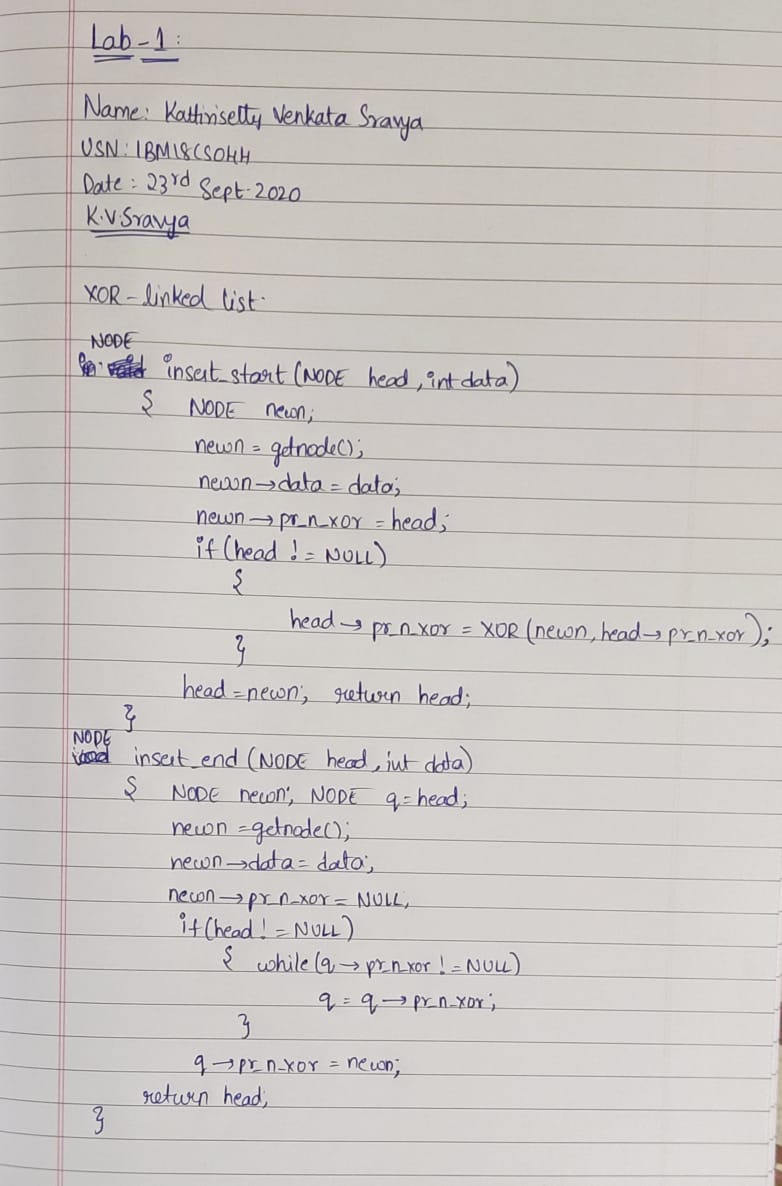 Lab-1:
Name: Kattiriselty Venkata Sravya
USN: 1BM18CS044
Date: 23rd Sept-2020
K.V.Sravya
XOR-linked list.
NODE
insert_start(NODE head, int data)
{ NODE newn;
newn = getnode();
newn→data = data;
newn→pr_n_xor = head;
if(head != NULL)
{
head→pr_n_xor = XOR(newn, head→pr_n_xor);
}
head = newn; return head;
}
NODE
insert_end(NODE head, int data)
{ NODE newn; NODE q=head;
newn = getnode();
newn→data = data;
newn→pr_n_xor = NULL;
if(head != NULL)
{ while(q→pr_n_xor != NULL)
q = q→pr_n_xor;
}
q→pr_n_xor = newn;
return head;
}